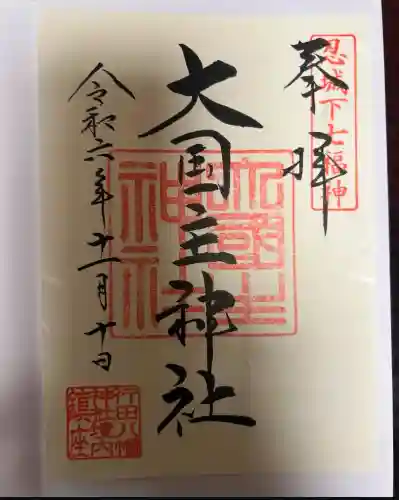 奉拝
忍城下七福神
大国主神社
大國主神社
令和六年十一月十日
行田八幡神社境内鎮座